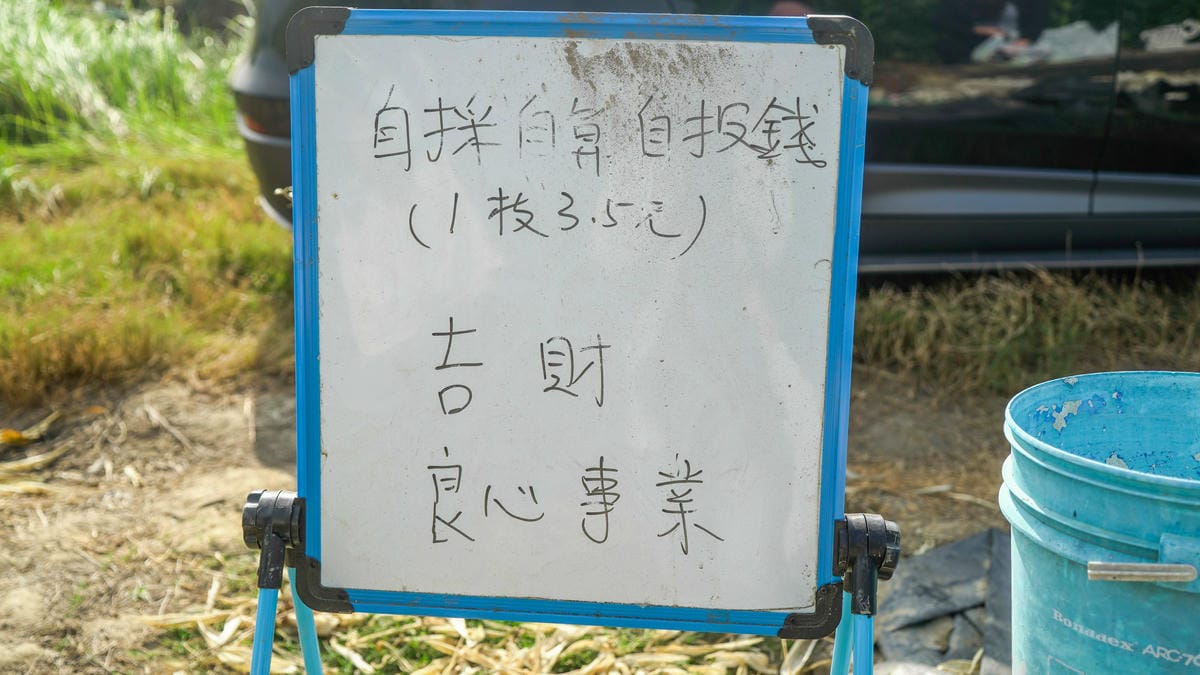 自採自算自投錢
(1枝3.5元)
吉財
良心事業
Bonadex ARC-70